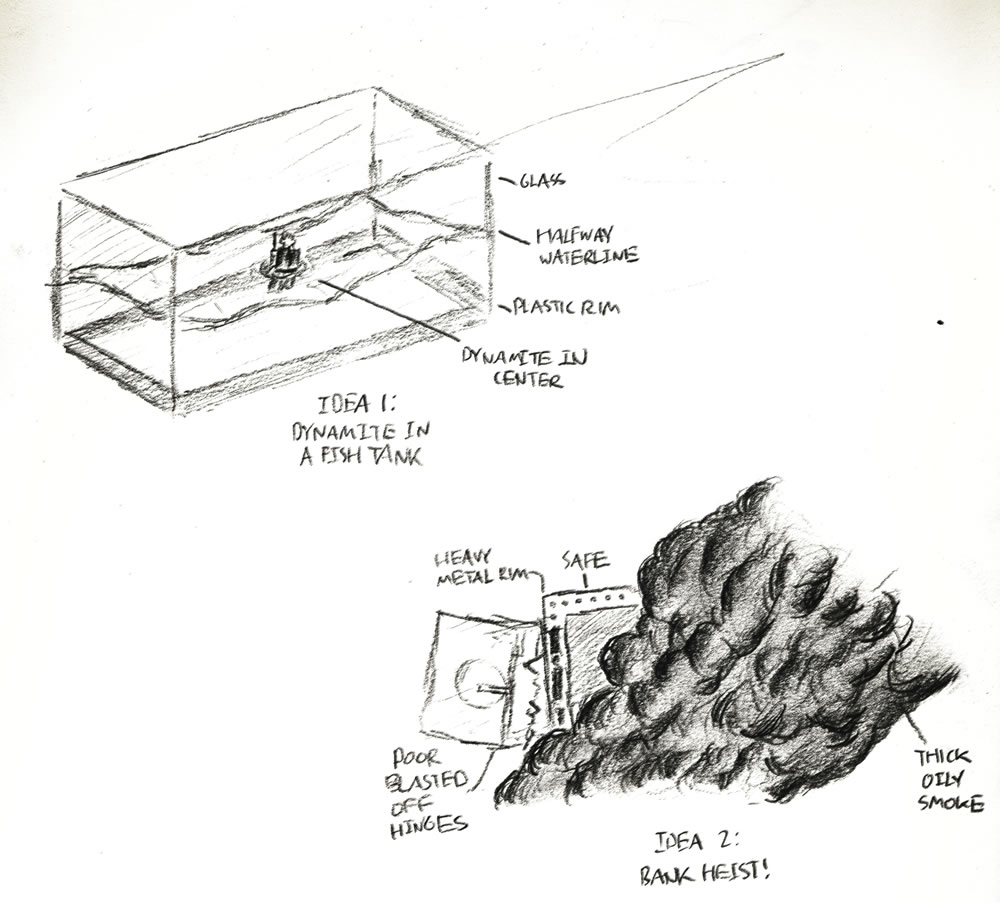 GLASS
HALFWAY
WATERLINE
PLASTIC RIM
DYNAMITE IN
CENTER
IDEA 1:
DYNAMITE IN
A FISH TANK
HEAVY
METAL RIM
SAFE
DOOR
BLASTED
OFF
HINGES
THICK
OILY
SMOKE
IDEA 2:
BANK HEIST!